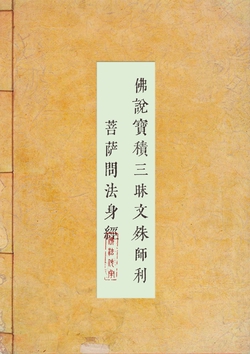 佛說寶積三昧文殊師利
菩薩問法身經